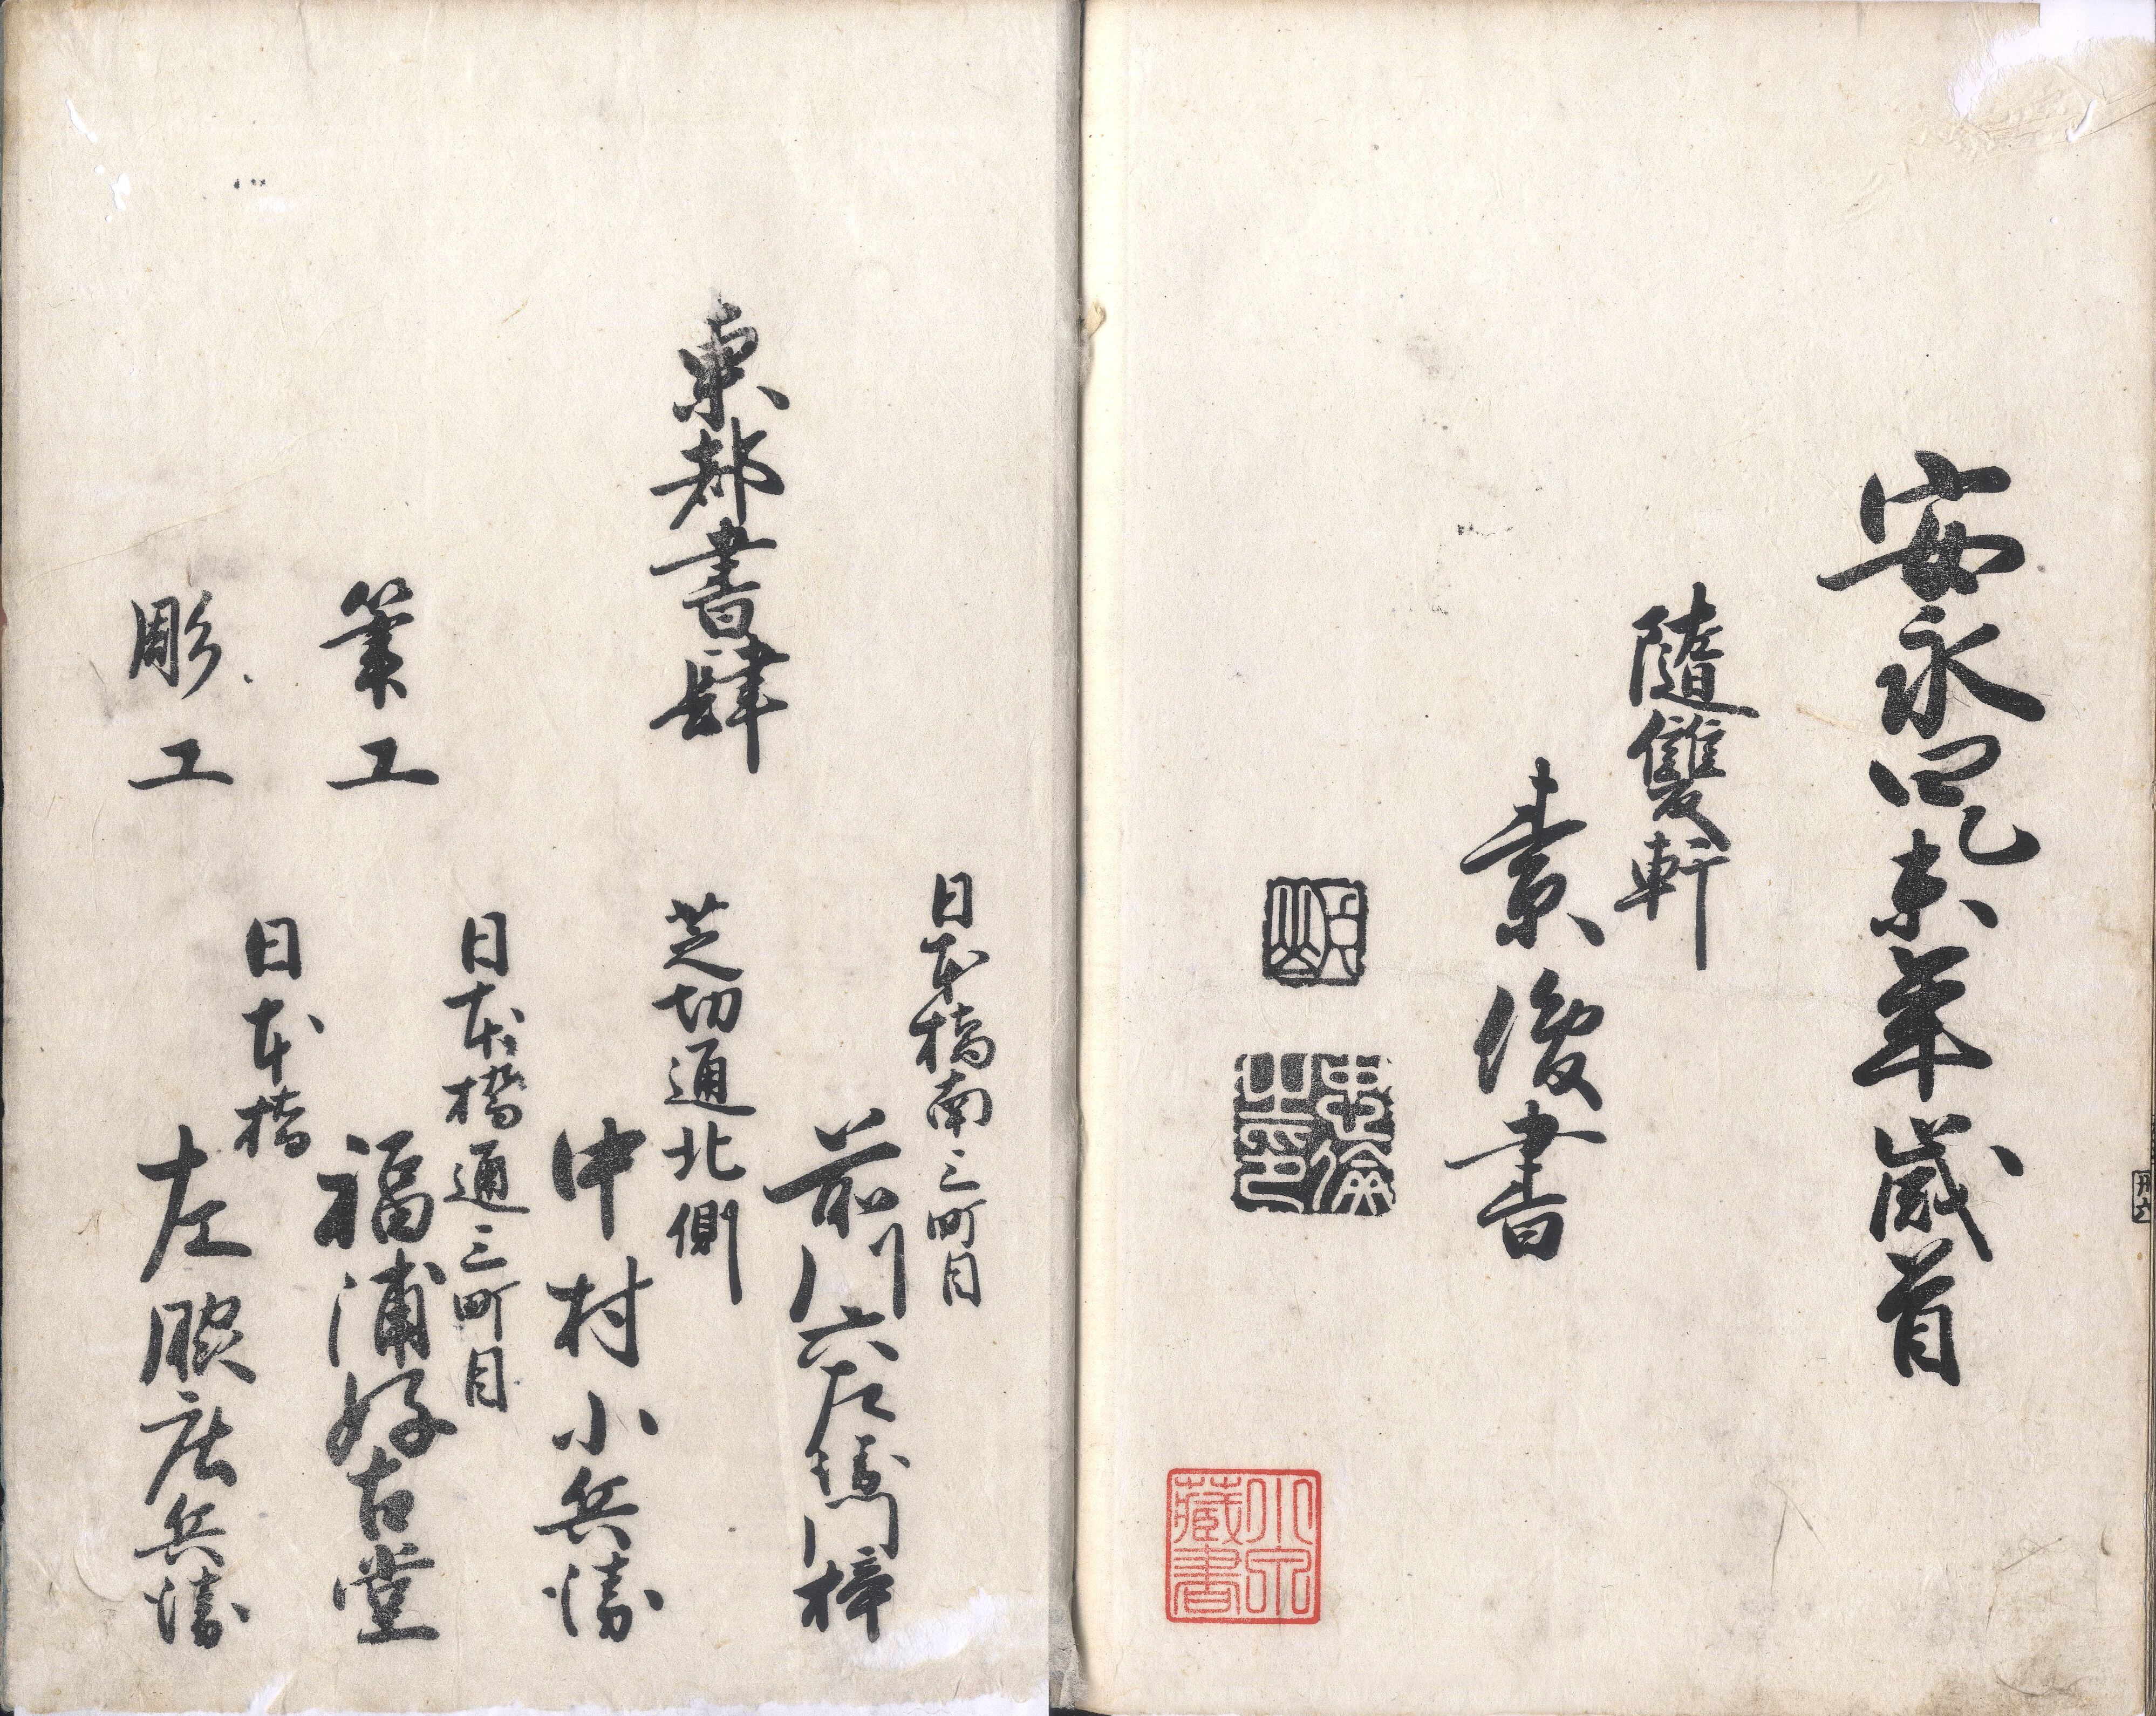 安永四乙未年歳首
隨雙軒
素後書
藏書
日本橋南三町目
前川六左衛門梓
東都書肆
芝切通北側
中村小兵衛
日本橋通三町目
筆工 福浦好古堂
日本橋
彫工 左脇庄兵衛